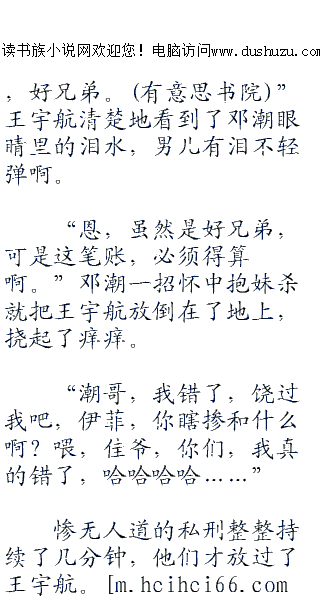 读书族小说网欢迎您！电脑访问www.dushuzu.com
，好兄弟。(有意思书院)”
王宇航清楚地看到了邓潮眼
睛里的泪水，男儿有泪不轻
弹啊。
“恩，虽然是好兄弟，
可是这笔账，必须得算
啊。”邓潮一招怀中抱妹杀
就把王宇航放倒在了地上，
挠起了痒痒。
“潮哥，我错了，饶过
我吧，伊菲，你瞎掺和什么
啊？喂，住爷，你们，我真
的错了，哈哈哈哈……”
惨无人道的私刑整整持
续了几分钟，他们才放过了
王宇航。[m.hcihci66.com